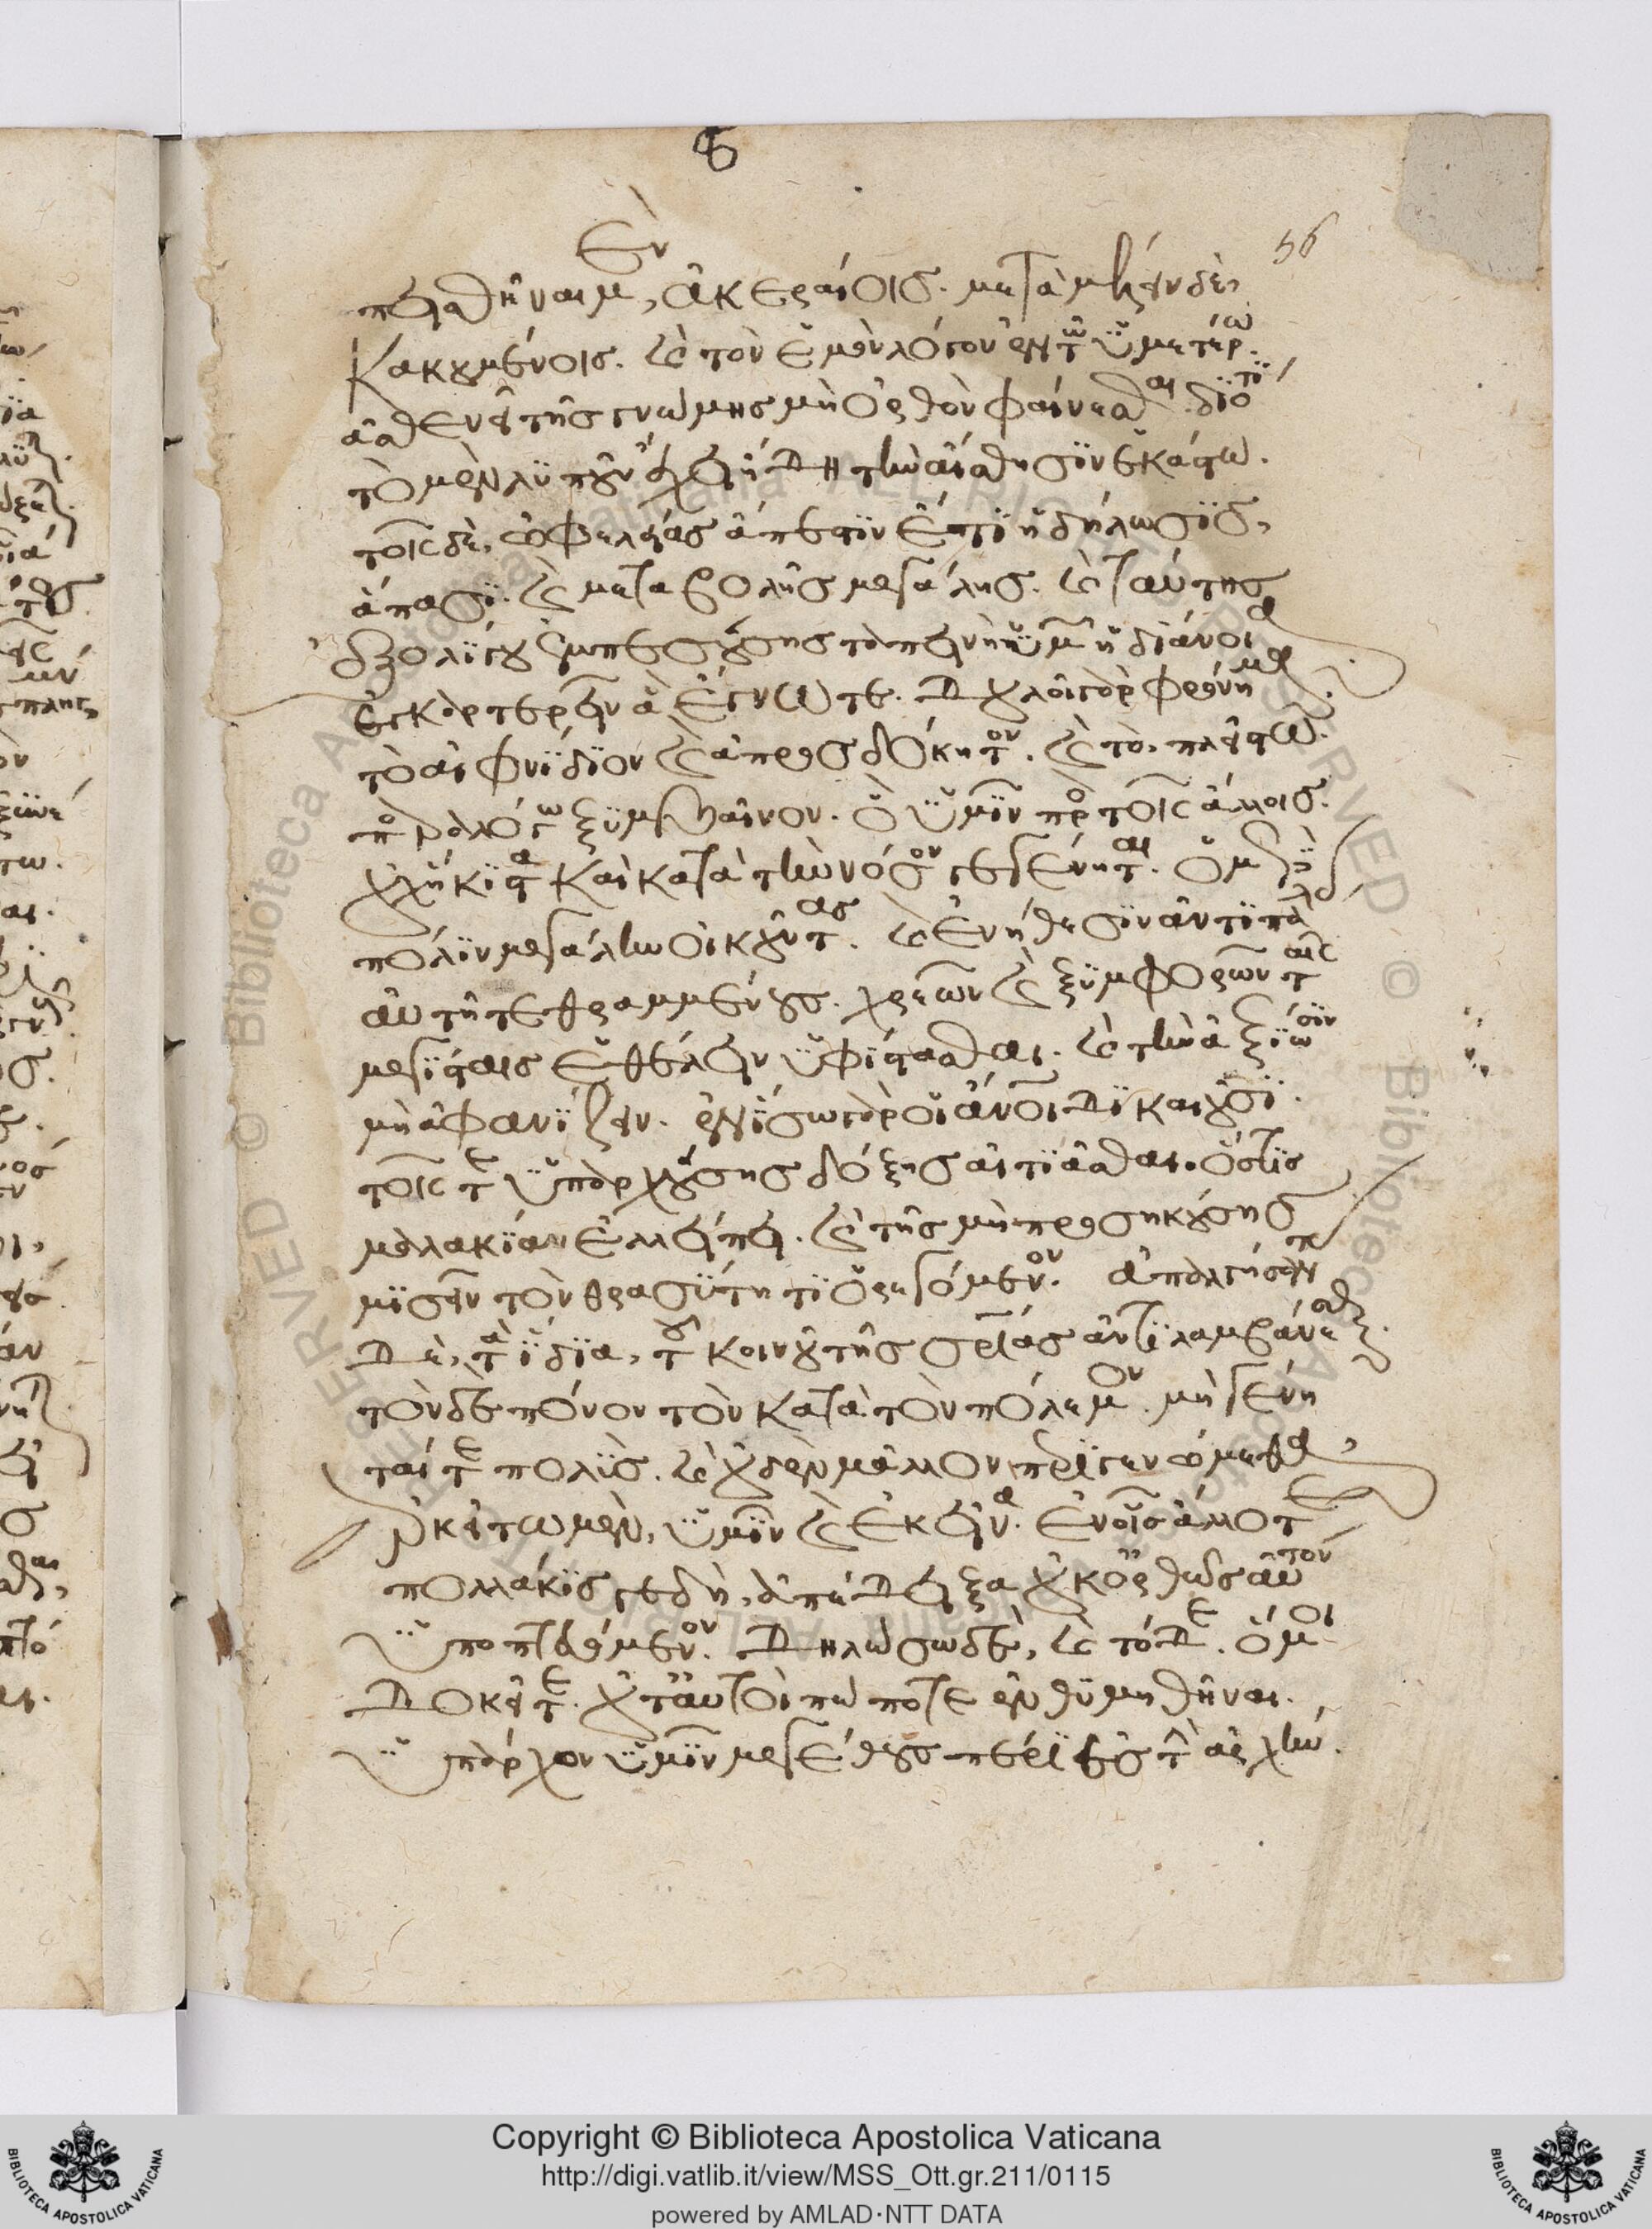 56
πεισθῆναι μὲν, ἀκεραίοις. μεταμέλειν δὲ,
κακουμένοις. καὶ τὸν ἐμὸν λόγον ἐν τῷ ὑμετέρῳ
ἀσθενεῖ τῆς γνώμης μὴ ὀρθὸν φαίνεσθαι. διότι
τὸ μὲν λυποῦν ἔχει ἤδη τὴν αἴσθησιν ἑκάστῳ.
τοῖς δὲ, ὠφελείας ἄπεστιν ἔτι ἡ δήλωσις,
ἅπασι. καὶ μεταβολῆς μεγάλης. καὶ ταύτης
ἐξ ὀλίγου ἐμπεσούσης ταπεινὴ ὑμῶν ἡ διάνοια
ἐγκαρτερεῖν ἃ ἔγνωτε. δουλοῖ γὰρ φρόνημα
τὸ αἰφνίδιον καὶ ἀπροσδόκητον. καὶ τὸ, πλείστω.
παραλόγω ξυμβαῖνον. ὃ ὑμῖν πρὸς τοῖς ἄλλοις.
οὐχ ἥκιστα καὶ κατὰ τὴν νόσον γεγένηται. ὅμως δὲ
πόλιν μεγάλην οἰκοῦντας. καὶ ἐν ἤθεσιν ἀντιπάλοις
αὐτῆ τεθραμμένους. χρεὼν καὶ ξυμφορῶν ταῖς
μεγίσταις ἐθέλειν ὑφίστασθαι. καὶ τὴν ἀξίωσιν
μὴ ἀφανίζειν. ἐν ἴσω γὰρ οἱ ἄνθρωποι δικαιοῦσι.
τοῖς τε ὑπαρχούσης δόξης αἰτιᾶσθαι. ὅστις
μαλακίαν ἐλλείπει. καὶ τῆς μὴ προσηκούσης
μισεῖν τὸν θρασύτητι ὀρεγόμενον. ἀπαλγήσαν
δὲ, τὰ ἴδια, τοῦ κοινοῦ τῆς σωτηρίας ἀντιλαμβάνεσθαι.
τὸν δὲ πόνον τὸν κατὰ τὸν πόλεμον. μὴ γένη
ταί τε πολὺς. καὶ οὐδὲν μᾶλλον περιγενώμεθα,
ἀρκείτω μὲν, ὑμῖν καὶ ἐκεῖνα. ἐν οἷς ἄλλοτε
πολλάκις γε δὴ, ἀπέδειξα οὐκ ὀρθῶς αὐτὸν
ὑποπτευόμενον. δηλώσω δὲ, καὶ τόδε. ὅ μοι
δοκεῖτε. οὔτ' αὐτοὶ πώποτε ἐνθυμηθῆναι.
ὑπάρχον ὑμῖν μεγέθους πέρι ἐς τὴν ἀρχήν.
Copyright © Biblioteca Apostolica Vaticana
http://digi.vatlib.it/view/MSS_Ott.gr.211/0115
powered by AMLAD·NTT DATA